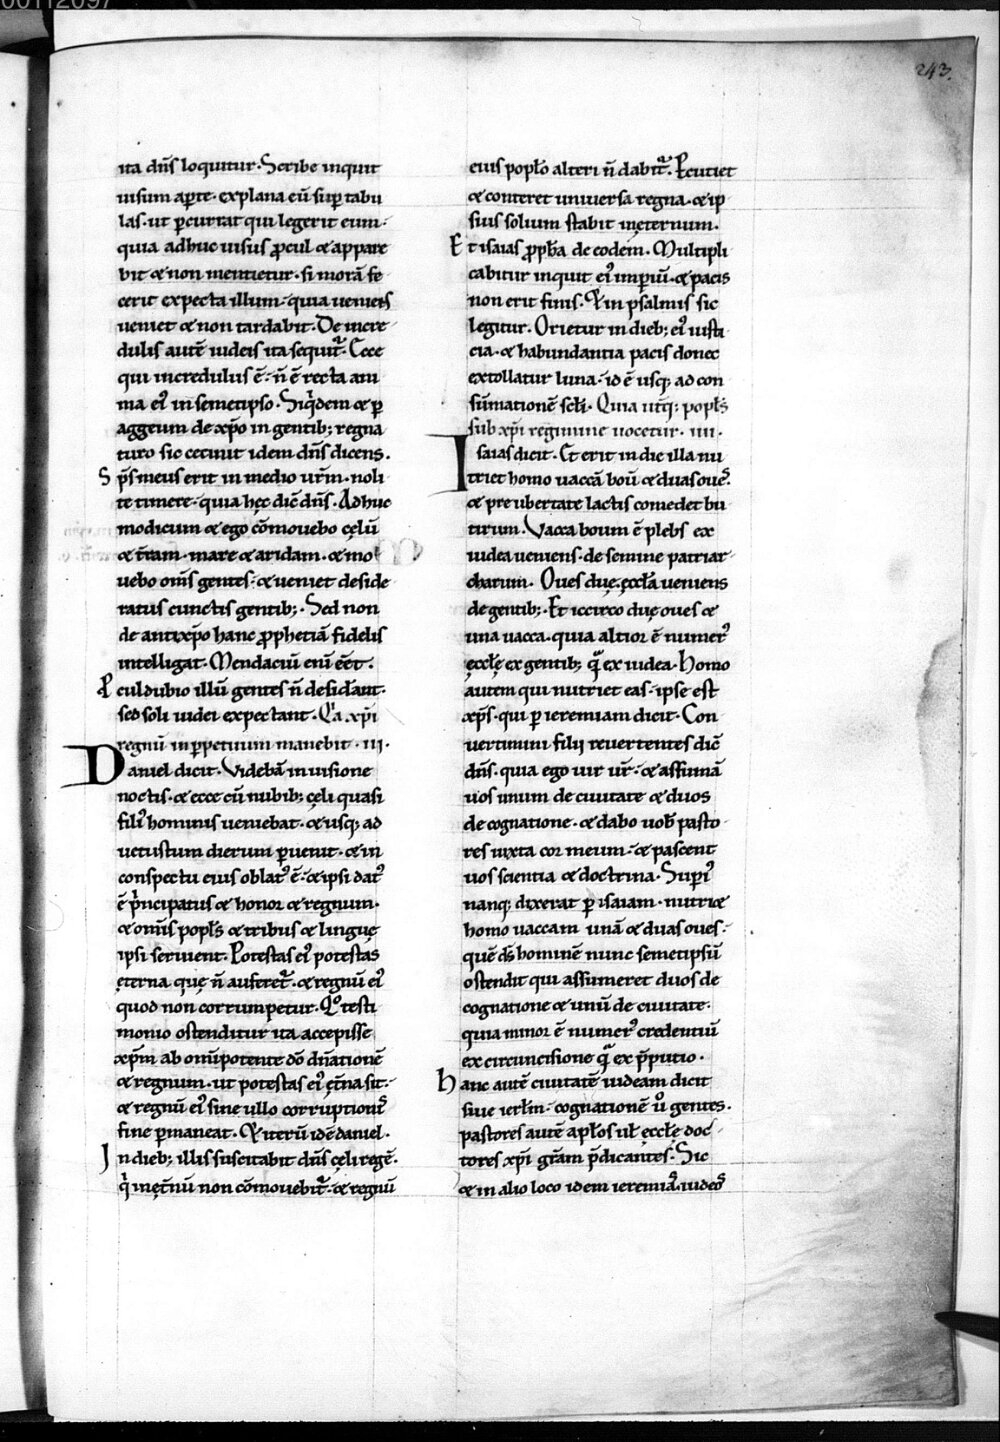 00112097
243.
ita dñs loquitur. Scribe inquit
uisum aꝑte. explana eũ suꝑ tabu
las. ut ꝑcurrat qui legerit eum.
quia adhuc uisus ꝓcul & appare
bit & non mentietur. si morã fe
cerit expecta illum. quia ueniens
ueniet & non tardabit. De incre
dulis autẽ iudeis ita sequit᷑. Ecce
qui incredulus ẽ. ñ ẽ recta ani
ma ei᷒ in semetipso. Siq̇dem & ꝑ
aggeum de xp̃o in gentib; regna
turo sic cecinit idem dñs dicens.
Sp̃s meus erit in medio ur̃m. noli
te timere. quia hęc dic̃ dñs. Adhuc
modicum & ego cõmouebo cęlũ
& t̃ram. mare & aridam. & mo
uebo om̃s gentes. & ueniet deside
ratus cunctis gentib;. Sed non
de antixp̃o hanc ꝓphetiã fidelis
intelligat. Mendaciũ eni eẽt.
Pcul dubio illũ gentes ñ desiďant.
sed soli iudei expectant. Q̇a xp̃i
regnũ in ꝑpetuum manebit. iii.
Daniel dicit. Videbã in uisione
noctis. & ecce cũ nubib; cęli quasi
fili᷒ hominis ueniebat. & usq; ad
uetustum dierum ꝑuenit. & in
conspectu eius oblat᷒ ẽ. & ipsi dat᷒
ẽ p̃ncipatus & honor & regnum.
& om̃is popl̃s & tribus & linguę
ipsi seruient. Potestas ei᷒ potestas
ęterna quę ñ auferet᷑. & regnũ ei᷒
quod non corrumpetur. Qͦ testi
monio ostenditur ita accepisse
xp̃m ab om̃ipotente dõ dñationẽ
& regnum. ut potestas ei᷒ ęt̃na sit.
& regnũ ei᷒ sine ullo corruptionis
fine ꝑmaneat. & iterũ idẽ daniel.
In dieb; illis suscitabit dñs cęli regẽ.
q̇ inęt̃nũ non cõmouebit᷑. & regnũ
eius popl̃o alteri ñ dabit᷑. Pcutiet
& conteret uniuersa regna. & ip
sius solium stabit inęternum.
Et isaias ꝓph̃a de eodem. Multipli
cabitur inquit ei᷒ imꝑiũ. & pacis
non erit finis. & in psalmis sic
legitur. Orietur in dieb; ei᷒ iusti
cia. & habundantia pacis donec
extollatur luna. id ẽ usq; ad con
sũmationẽ scl̃i. Quia ut̃q; popl̃s
sub xp̃i regimine uocetur. iiii.
Isaias dicit. Et erit in die illa nu
triet homo uaccã boũ & duas oues.
& pre ubertate lactis comedet bu
tirum. Vacca boum ẽ plebs ex
iudea ueniens. de semine patriar
charum. Oues duę. ęccl̃a ueniens
de gentib;. Et iccirco duę oues &
una uacca. quia altior ẽ numer᷒
ęccl̃ę ex gentib; q̃ ex iudea. Homo
autem qui nutriet eas. ipse est
xp̃s. qui ꝑ ieremiam dicit. Con
uertimini filii reuertentes dic̃
dñs. quia ego uir ur̃. & assumã
uos unum de ciuitate & duos
de cognatione. & dabo uob̃ pasto
res iuxta cor meum. & pascent
uos scientia & doctrina. Suꝑi᷒
nanq; dixerat ꝑ isaiam. nutriet
homo uaccam unã & duas oues.
quẽ dš hominẽ nunc semetipsũ
ostendit qui assumeret duos de
cognatione & unũ de ciuitate.
quia minor ẽ numer᷒ credentiũ
ex circuncisione q̃ ex p̃putio.
Hanc autẽ ciuitatẽ iudeam dicit
siue ierl̃m. cognationẽ ů gentes.
pastores autẽ apl̃os ul̃ ęccl̃ę doc
tores xp̃i gr̃am p̃dicantes. Sic
& in alio loco idem ieremias. iudeos